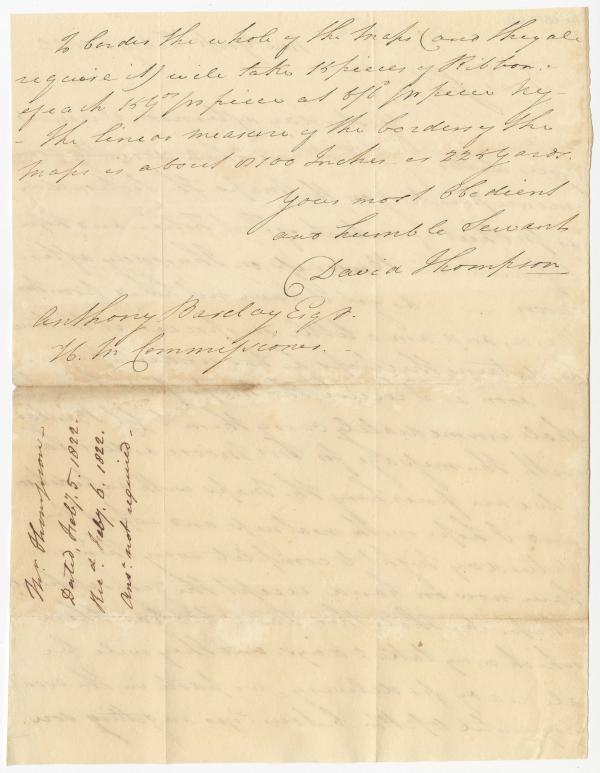 To border the whole of the Maps (and they all
require it) will take 15 pieces of Ribbon
of each 15 yds pr piece at 6/6 pr piece
The linear measure of the bordering the
Maps is about 8100 Inches or 225 yards.
Your most Obedient
and humble Servant
David Thompson
Anthony Barclay Esqr.
H. M Commissioner.
Mr. Thompson
Dated, Feby. 5. 1822.
Rec'd Feby. 6. 1822.
Ansr. not required